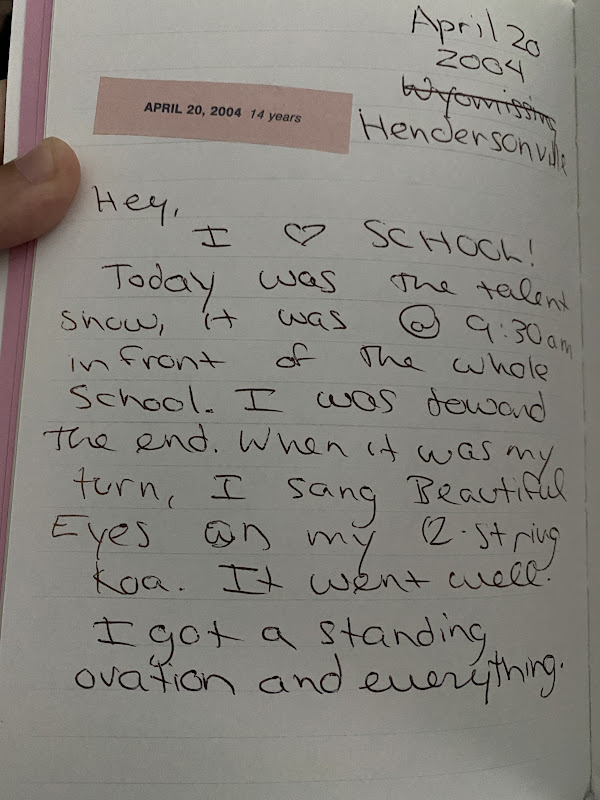 April 20
2004
Wyomissing
Hendersonville
APRIL 20, 2004 14 years
Hey,
I ♡ SCHOOL!
Today was the talent
show, it was @ 9:30am
in front of the whole
school. I was toward
the end. When it was my
turn, I sang Beautiful
Eyes on my 12-string
Koa. It went well.
I got a standing
ovation and everything.